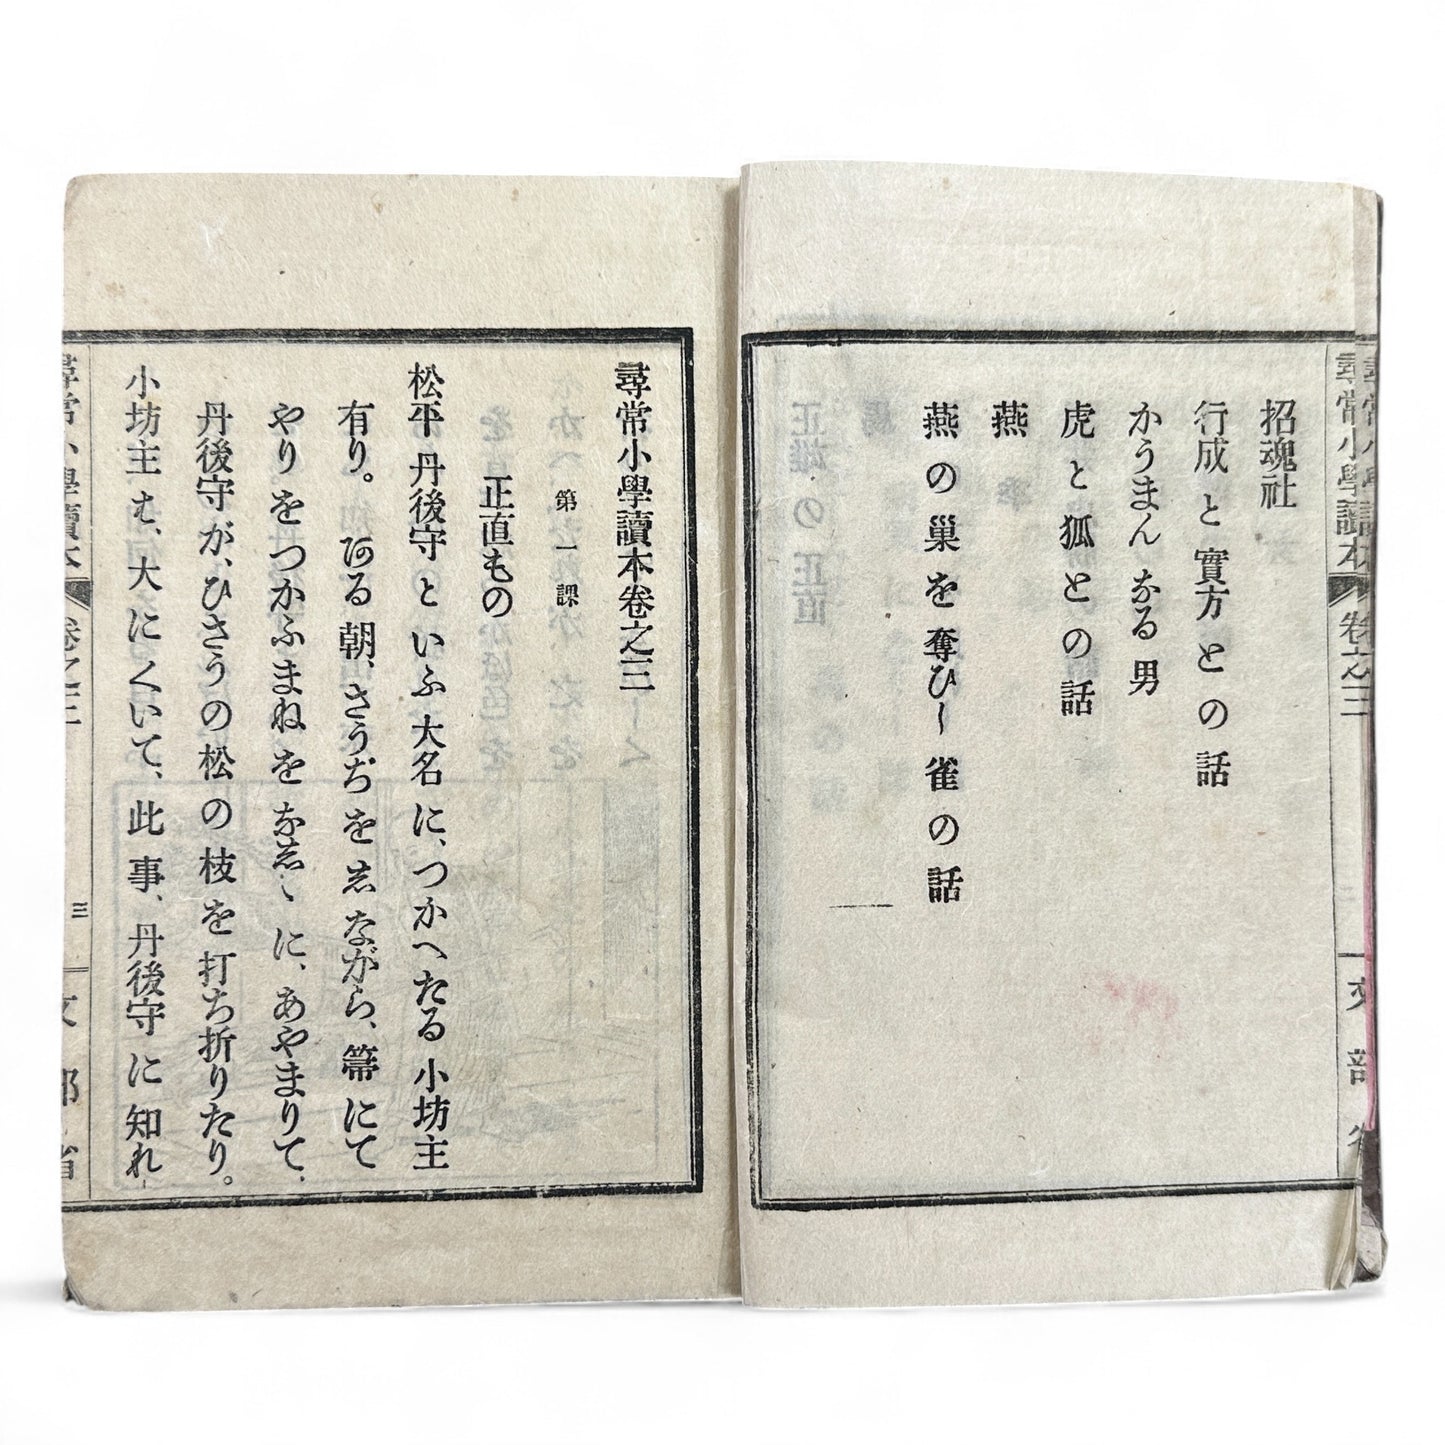 尋常小學讀本 卷之三
文部省
招魂社
行成と實方との話
かうまんなる男
虎と狐との話
燕
燕の巢を奪ひし雀の話
尋常小學讀本卷之三
第一課
正直もの
松平丹後守といふ大名に、つかへたる小坊主
有り。ある朝、さうぢを志ながら、箒にて
やりをつかふまねをな志ゝに、あやまりて、
丹後守が、ひさうの松の枝を打ち折りたり。
小坊主も、大にくいて、此事、丹後守に知れ
尋常小學讀本 卷之三
三
文部省